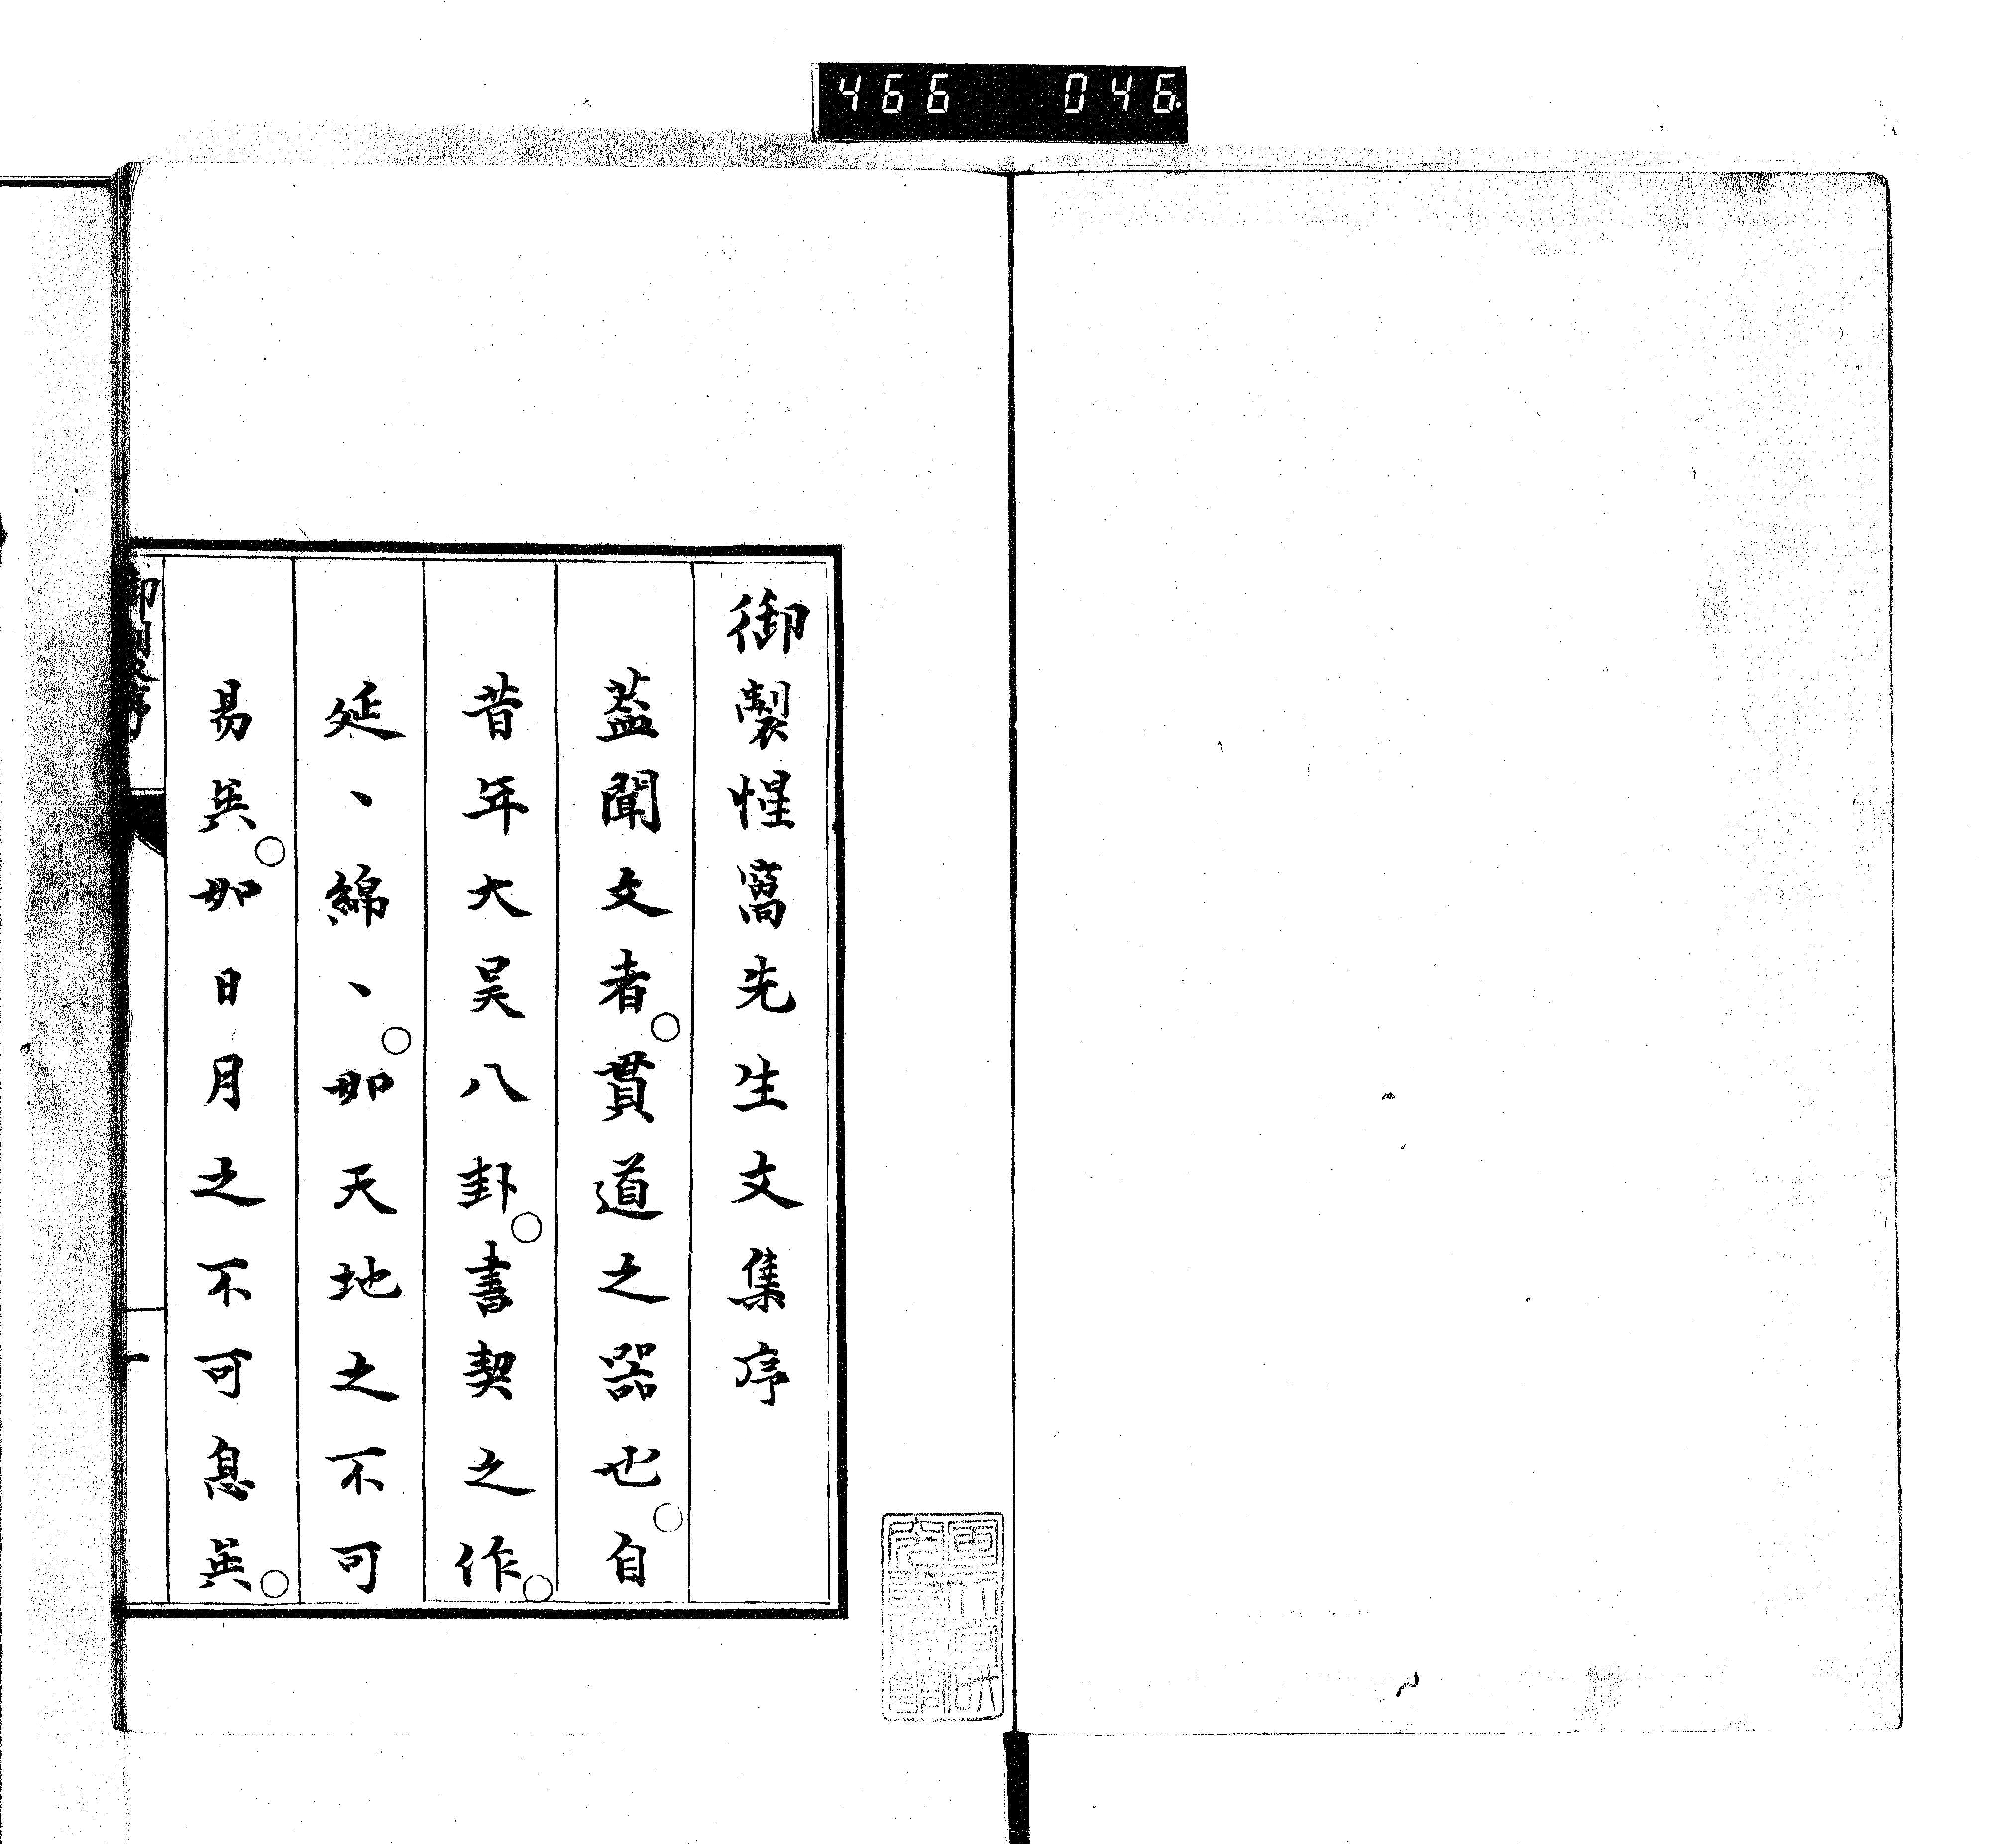 466 046
御製惺窩先生文集序
蓋聞文者貫道之器也自
昔年大昊八卦書契之作
延〻綿〻如天地之不可
易矣如日月之不可息矣
御製序
一